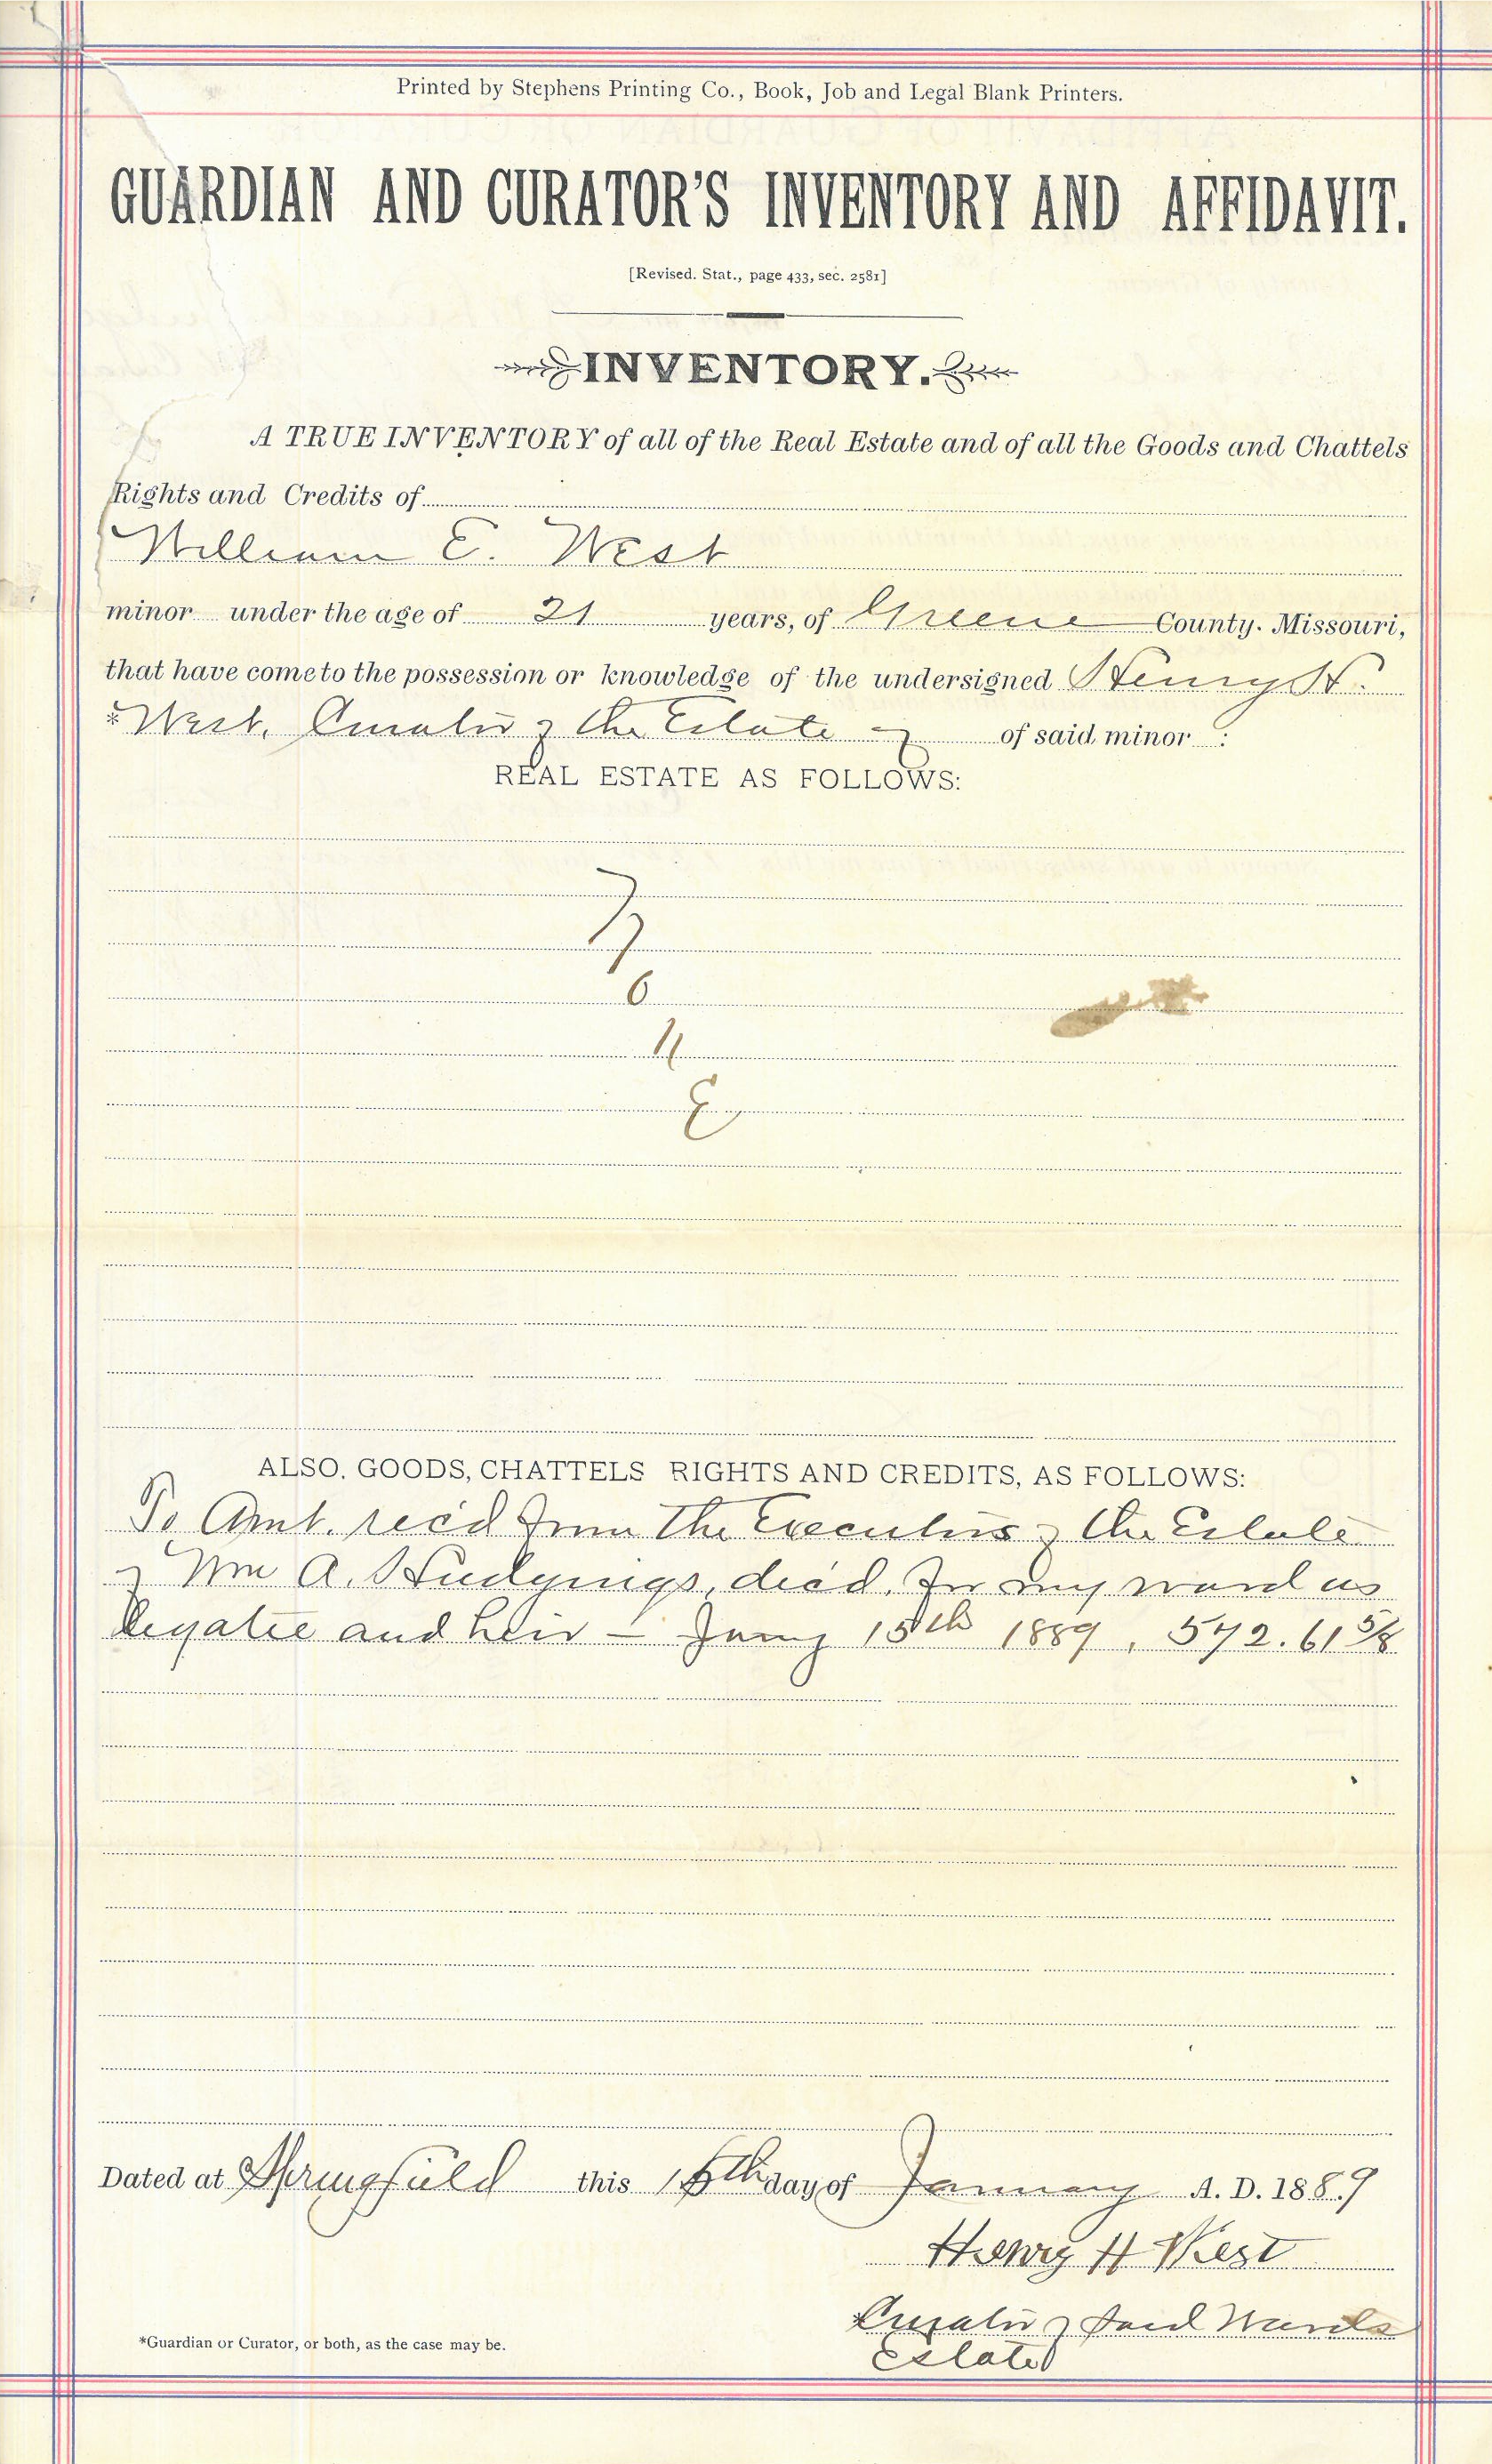 Printed by Stephens Printing Co., Book, Job and Legal Blank Printers.
GUARDIAN AND CURATOR'S INVENTORY AND AFFIDAVIT.
[Revised. Stat., page 433, sec. 2581]
INVENTORY.
A TRUE INVENTORY of all of the Real Estate and of all the Goods and Chattels
Rights and Credits of
William E. West
minor under the age of 21 years, of Greene County. Missouri,
that have come to the possession or knowledge of the undersigned Henry H.
*West, Curator of the Estate of of said minor :
REAL ESTATE AS FOLLOWS:
N
o
n
E
ALSO, GOODS, CHATTELS RIGHTS AND CREDITS, AS FOLLOWS:
To Amt. rec'd from the Executors of the Estate
of Wm A. Hudgings, dec'd. for my ward as
legatee and heir – Jany 15th 1889, 572.61 5/8
Dated at Springfield this 15th day of January A. D. 1889
Henry H West
*Curator of said Wards
Estate
*Guardian or Curator, or both, as the case may be.